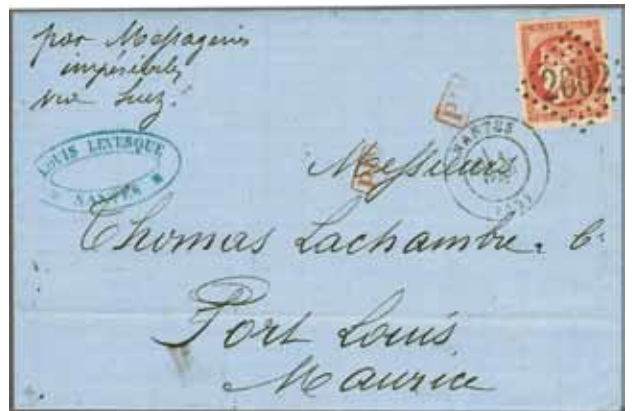 par Messageries
impériales
via Suez.
LOUIS LEVESQUE
NANTES
2602
PD
PD
NANTES
Messieurs
Thomas Lachambre. Cº
Port Louis
Maurice